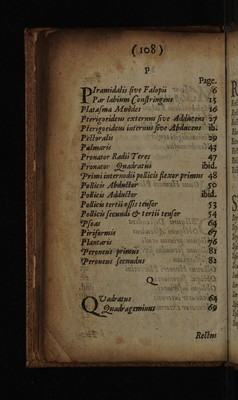 (108)
P
Page.
PIramidalis sive Falopii 6
Par labium Constringens 15
Platisma Muodes 16
Pterigoideus externus sive Adducens 27
Pterigoideus internus sive Abducens ibi.
Pectoralis 29
Palmaris 43
Pronator Radii Teres 47
Pronator Quadratus ibid.
Primi internodii pollicis flexor primus 48
Pollicis Abductor 50
Pollicis Adductor ibid.
Pollicis tertii ossis tensor 53
Pollicis secundi & tertii tensor 54
Psoas 64
Piriformis 67
Plantaris 76
Peroneus primus 81
Peroneus secundus 82
Q
QUadratus 64
Quadrageminus 69
Rectus